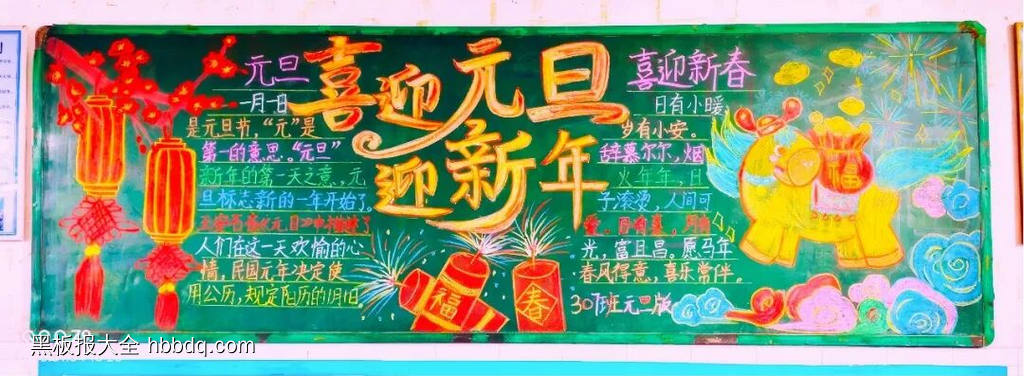 喜迎元旦
迎新年
元旦
一月一日
是元旦节，“元”是
第一的意思。“元旦”
新年的第一天之意，元
旦标志新的一年开始了。
人们在这一天欢愉的心
情，民国元年决定使
用公历，规定阳历的1月1日
喜迎新春
日有小暖，
岁有小安。
辞暮尔尔，烟
火年年，日
子滚烫，人间可
爱，
光，富且昌。愿马年
春风得意，喜乐常伴。
307班元旦版
福
春
福
黑板报大全 hbbdq.com